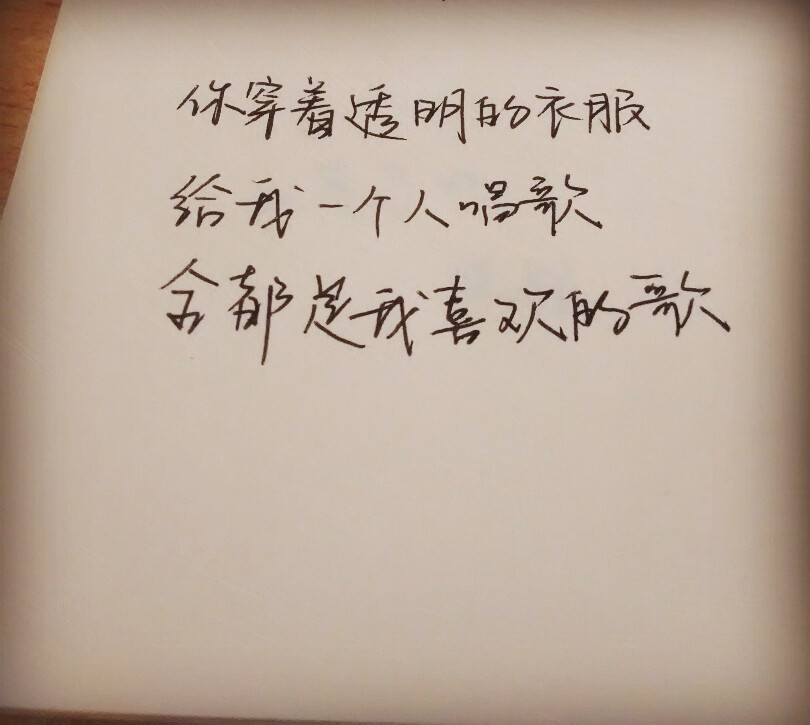 你穿着透明的衣服
给我一个人唱歌
全都是我喜欢的歌